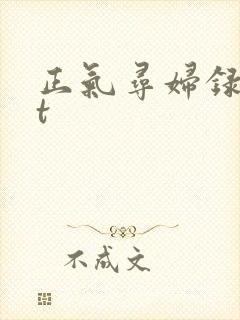 正氣尋婦録
t
不成文